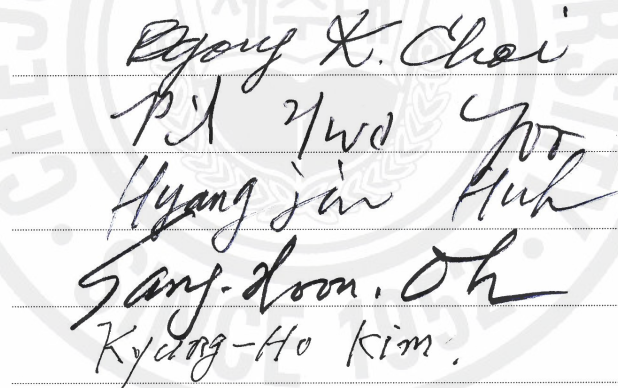 Byong K. Choi
Pil Hwa Yoo
Hyang jin Huh
Sang-Hoon. Oh
Kyung-Ho Kim.